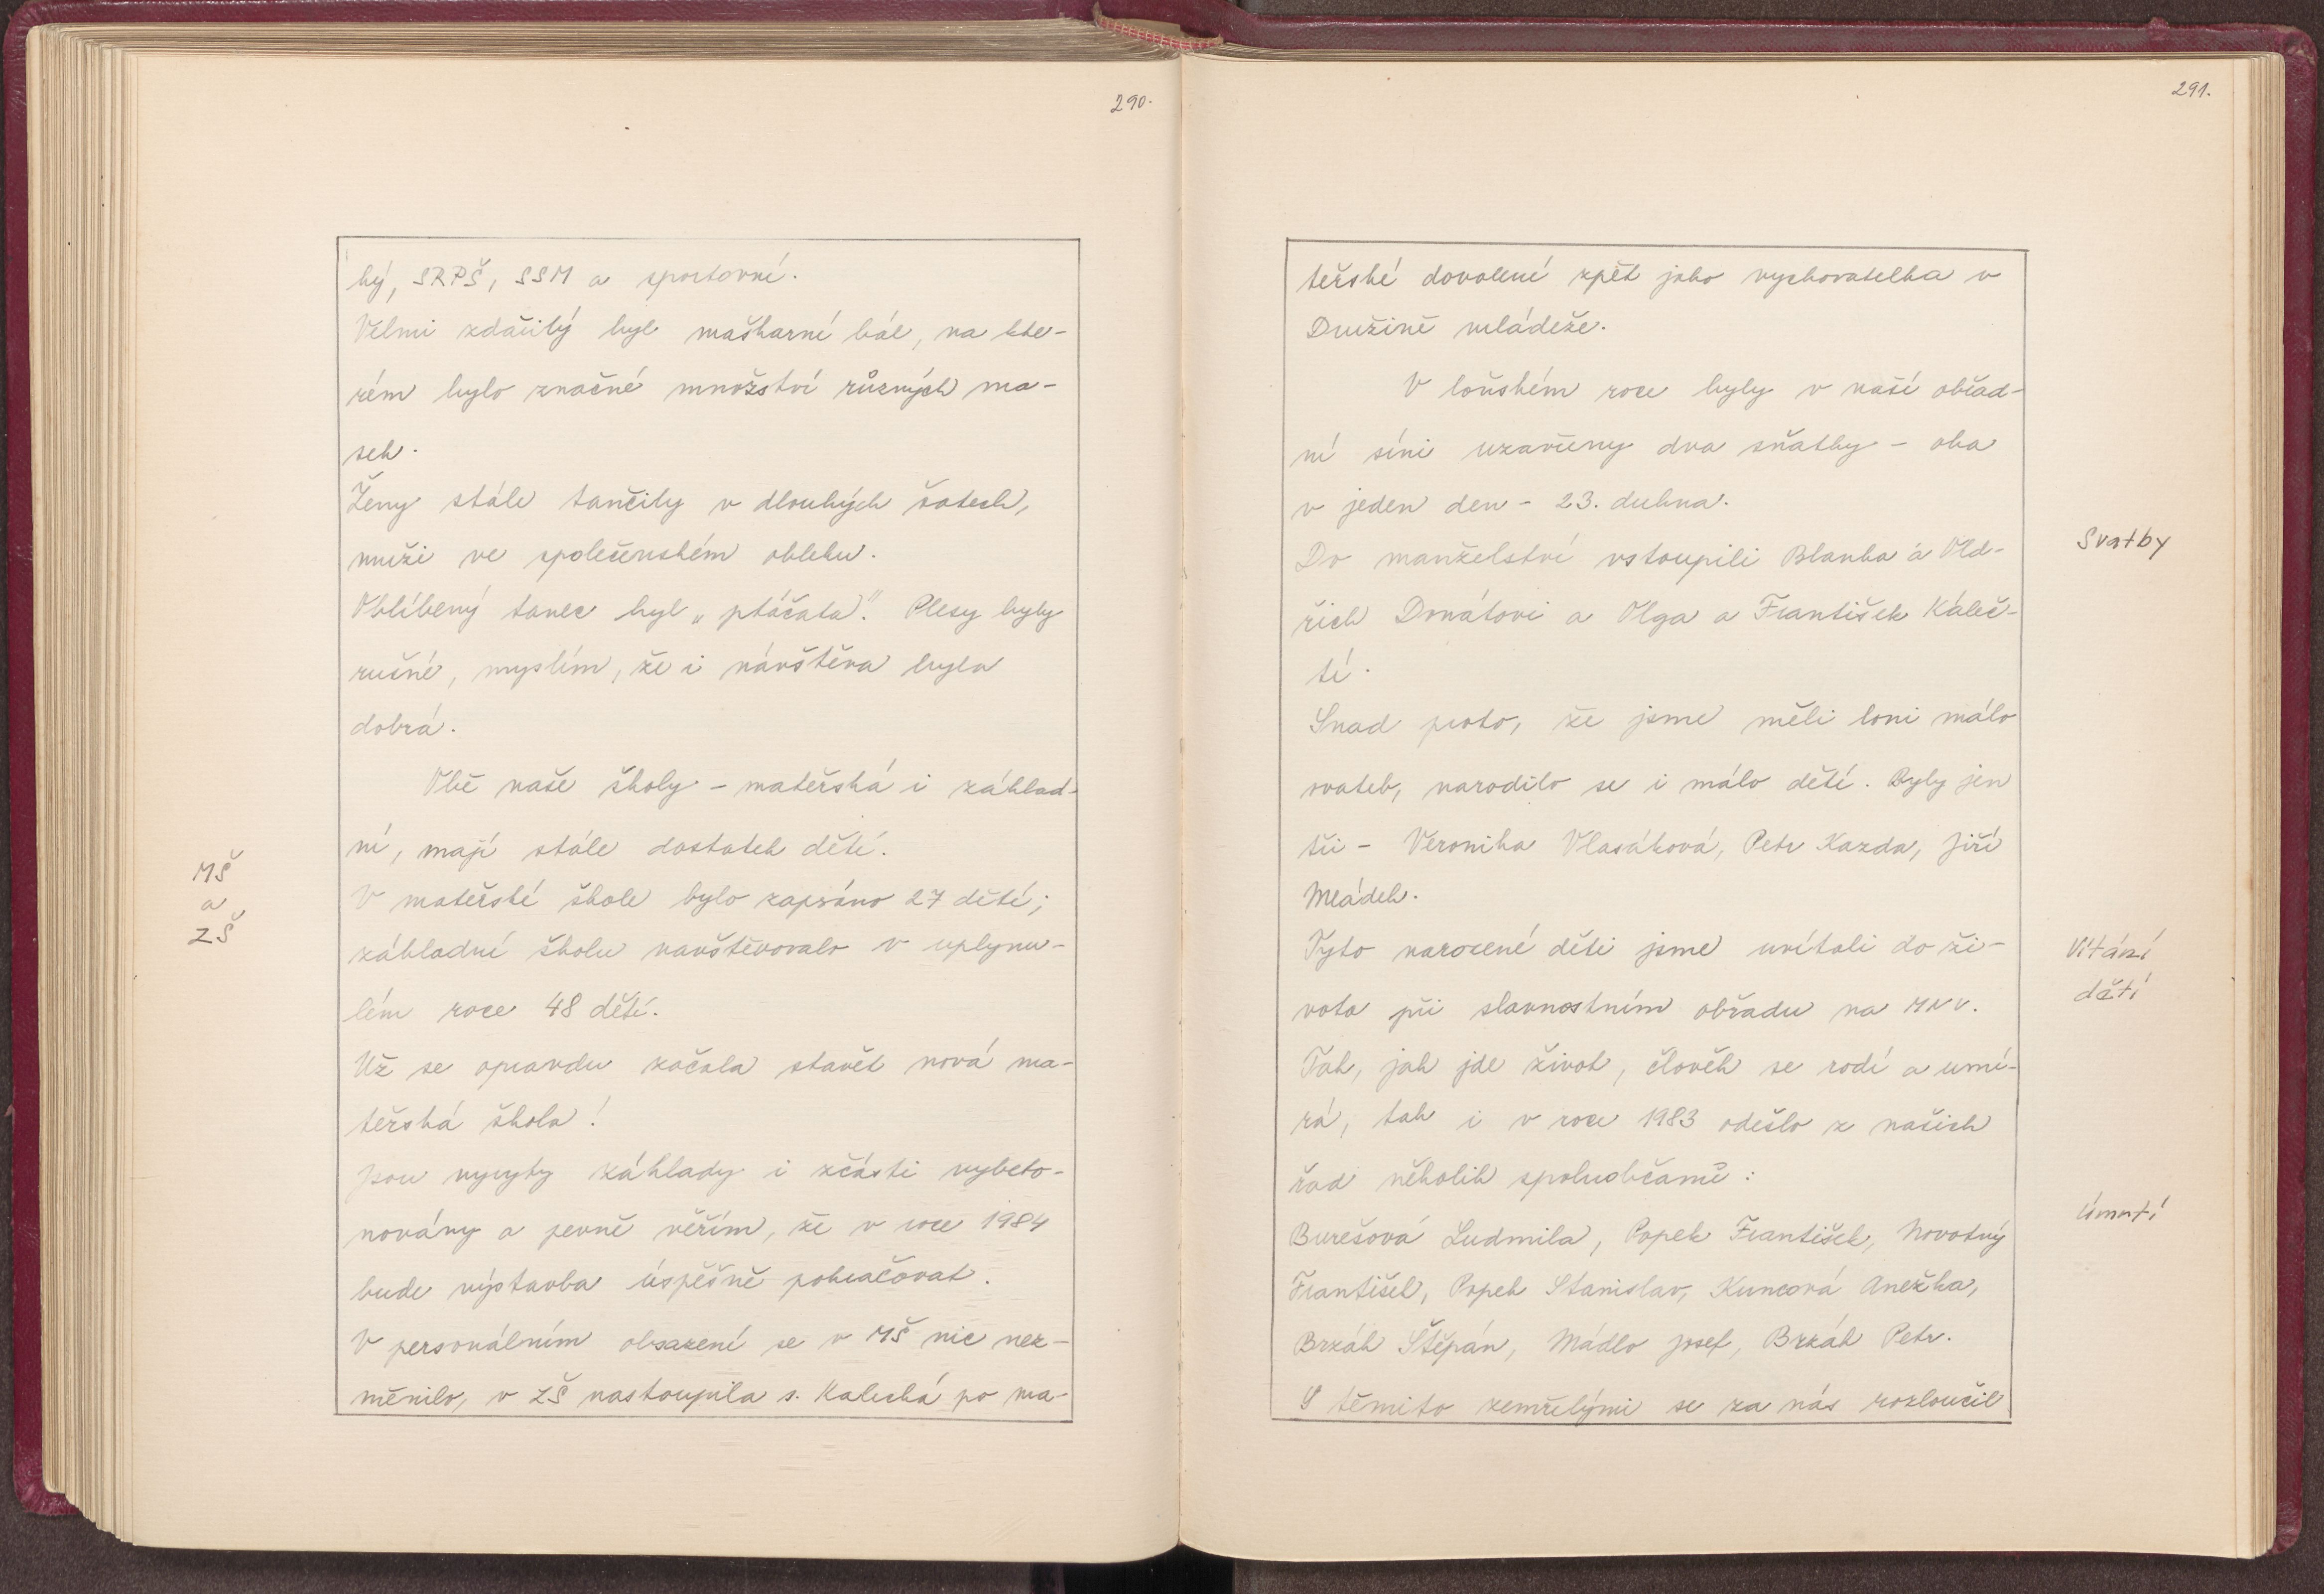 290.
ký, SRPŠ, SSM a sportovní.
Velmi zdařilý byl maškarní bál, na kte-
rém bylo značné množství různých ma-
sek.
Ženy stále tančily v dlouhých šatech,
muži ve společenském obleku.
Oblíbený tanec byl „ptáčata". Plesy byly
rušné, myslím, že i návštěva byla
dobrá.
Obě naše školy - mateřská i základ-
ní, mají stále dostatek dětí.
MŠ
a
ZŠ
V mateřské škole bylo zapsáno 27 dětí;
základní školu navštěvovalo v uplynu-
lém roce 48 dětí.
Už se opravdu začala stavět nová ma-
teřská škola!
Jsou vyryty základy i zčásti vybeto-
novány a pevně věřím, že v roce 1984
bude výstavba úspěšně pokračovat.
V personálním obsazení se v MŠ nic nez-
měnilo, v ZŠ nastoupila s. Kalecká po ma-
291.
teřské dovolené zpět jako vychovatelka v
Družině mládeže.
V loňském roce byly v naší obřad-
ní síni uzavřeny dva sňatky - oba
v jeden den - 23. dubna.
Svatby
Do manželství vstoupili Blanka a Old-
řich Donátovi a Olga a František Káleč-
tí.
Snad proto, že jsme měli loni málo
svateb, narodilo se i málo dětí. Byly jen
tři - Veronika Vlasáková, Petr Kazda, Jiří
Mládek.
Vítání
dětí
Tyto narozené děti jsme uvítali do ži-
vota při slavnostním obřadu na MNV.
Tak, jak jde život, člověk se rodí a umí-
rá, tak i v roce 1983 odešlo z našich
řad několik spoluobčanů:
Úmrtí
Burešová Ludmila, Popek František, Novotný
František, Popek Stanislav, Kuncová Anežka,
Brzák Štěpán, Mádlo Josef, Brzák Petr.
S těmito zemřelými se za nás rozloučil